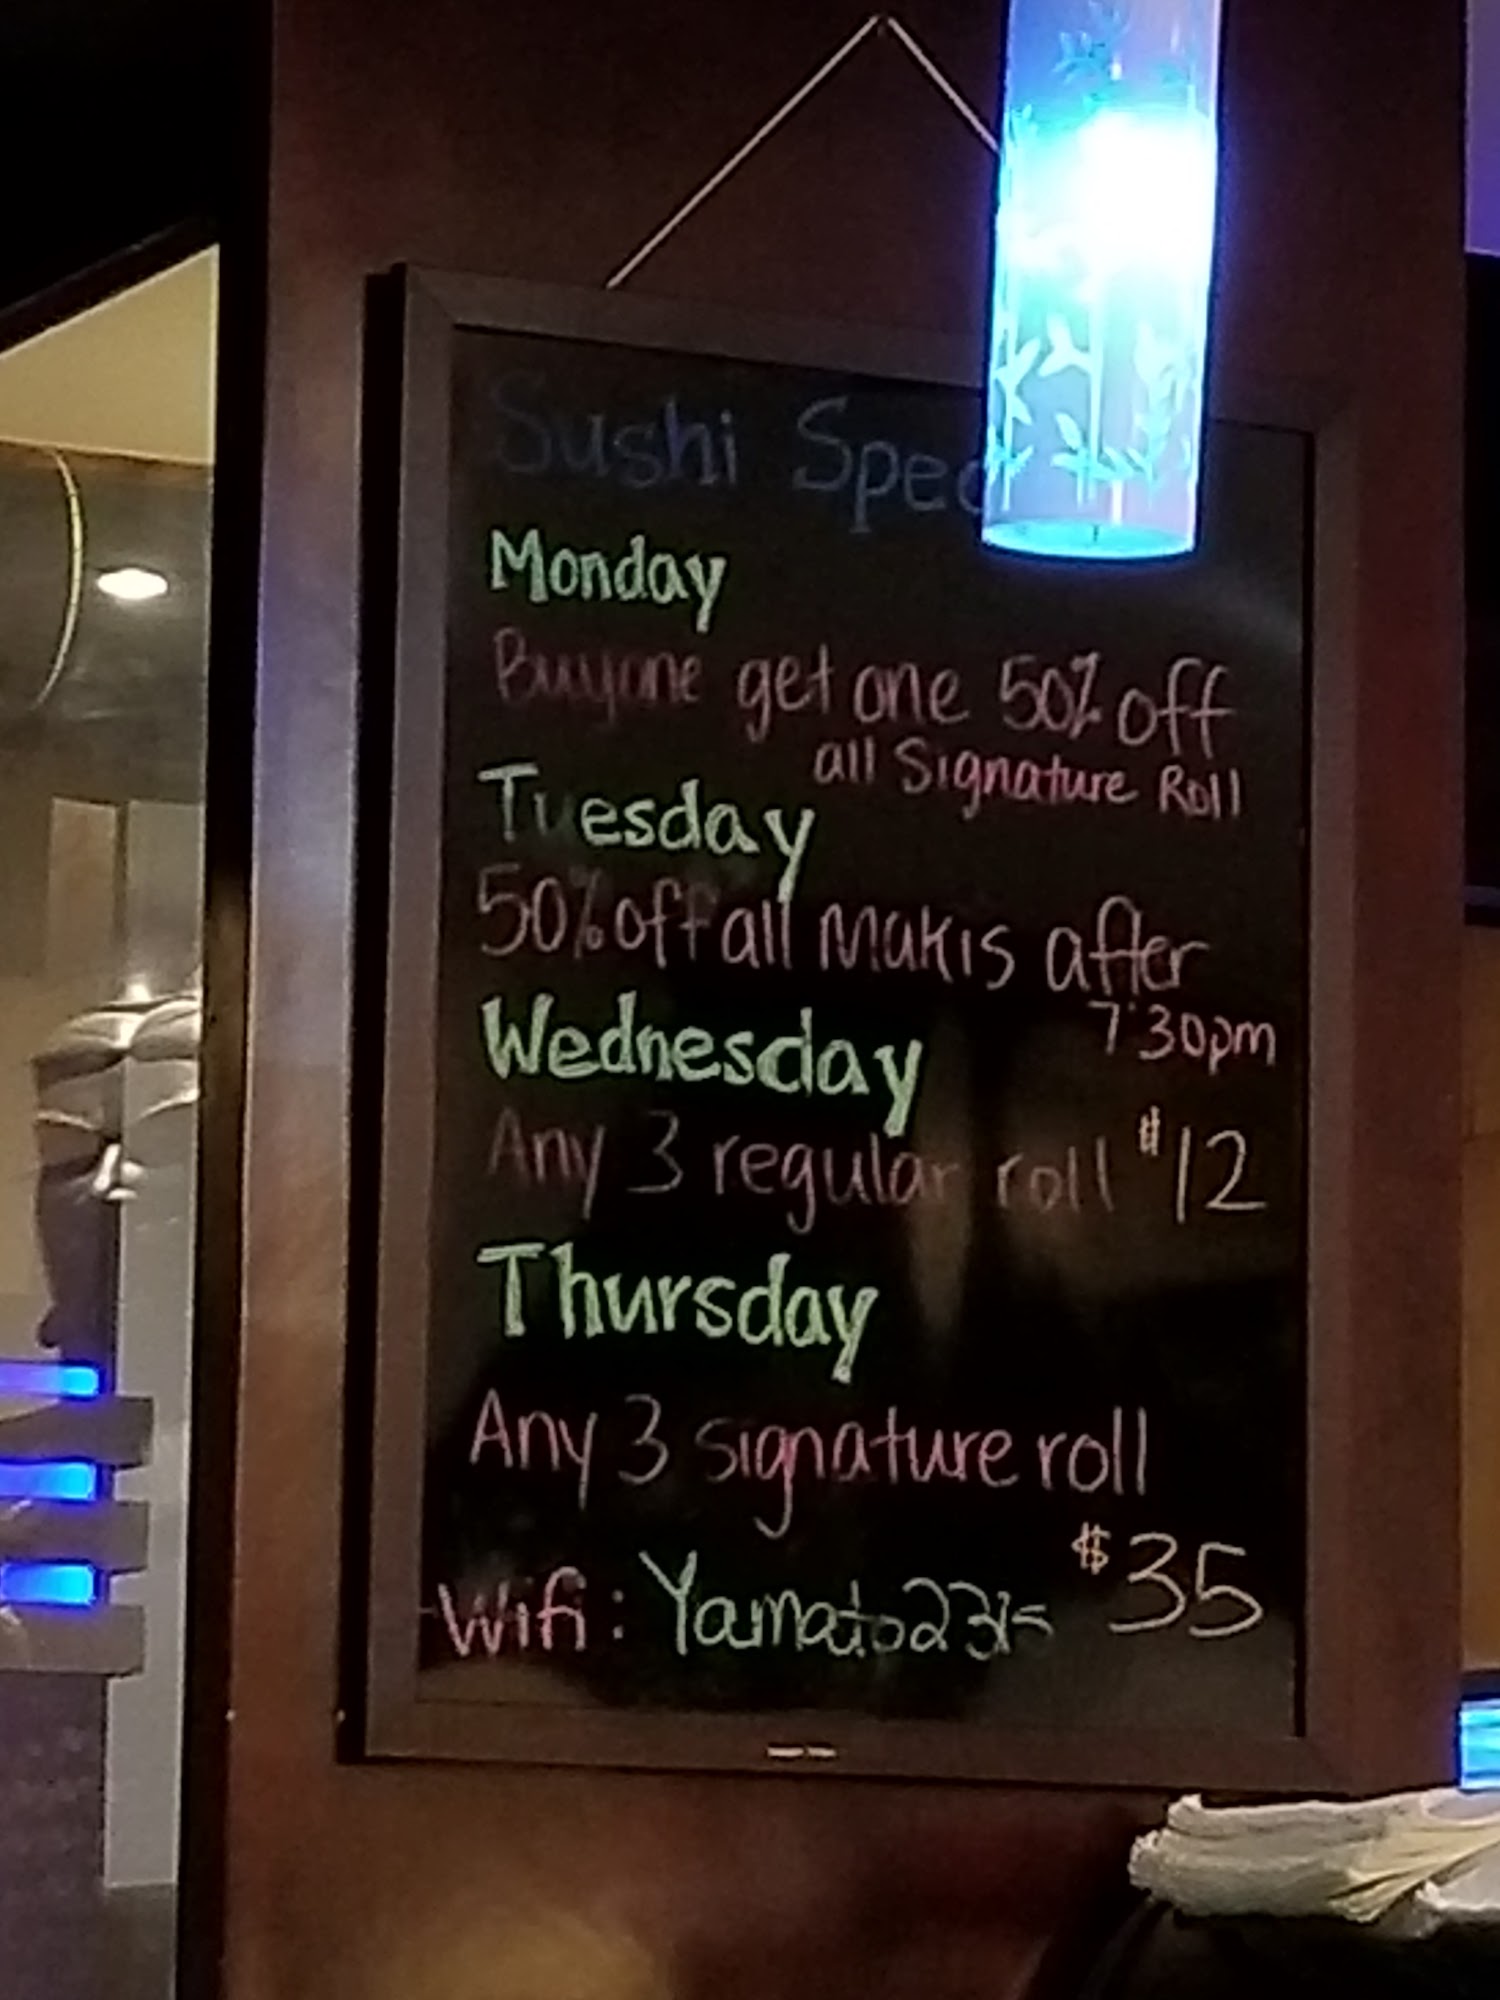 Sushi Spec
Monday
Buy one get one 50% off
all Signature Roll
Tuesday
50% off all Makis after
7:30pm
Wednesday
Any 3 regular roll $12
Thursday
Any 3 signature roll
$35
Wifi: